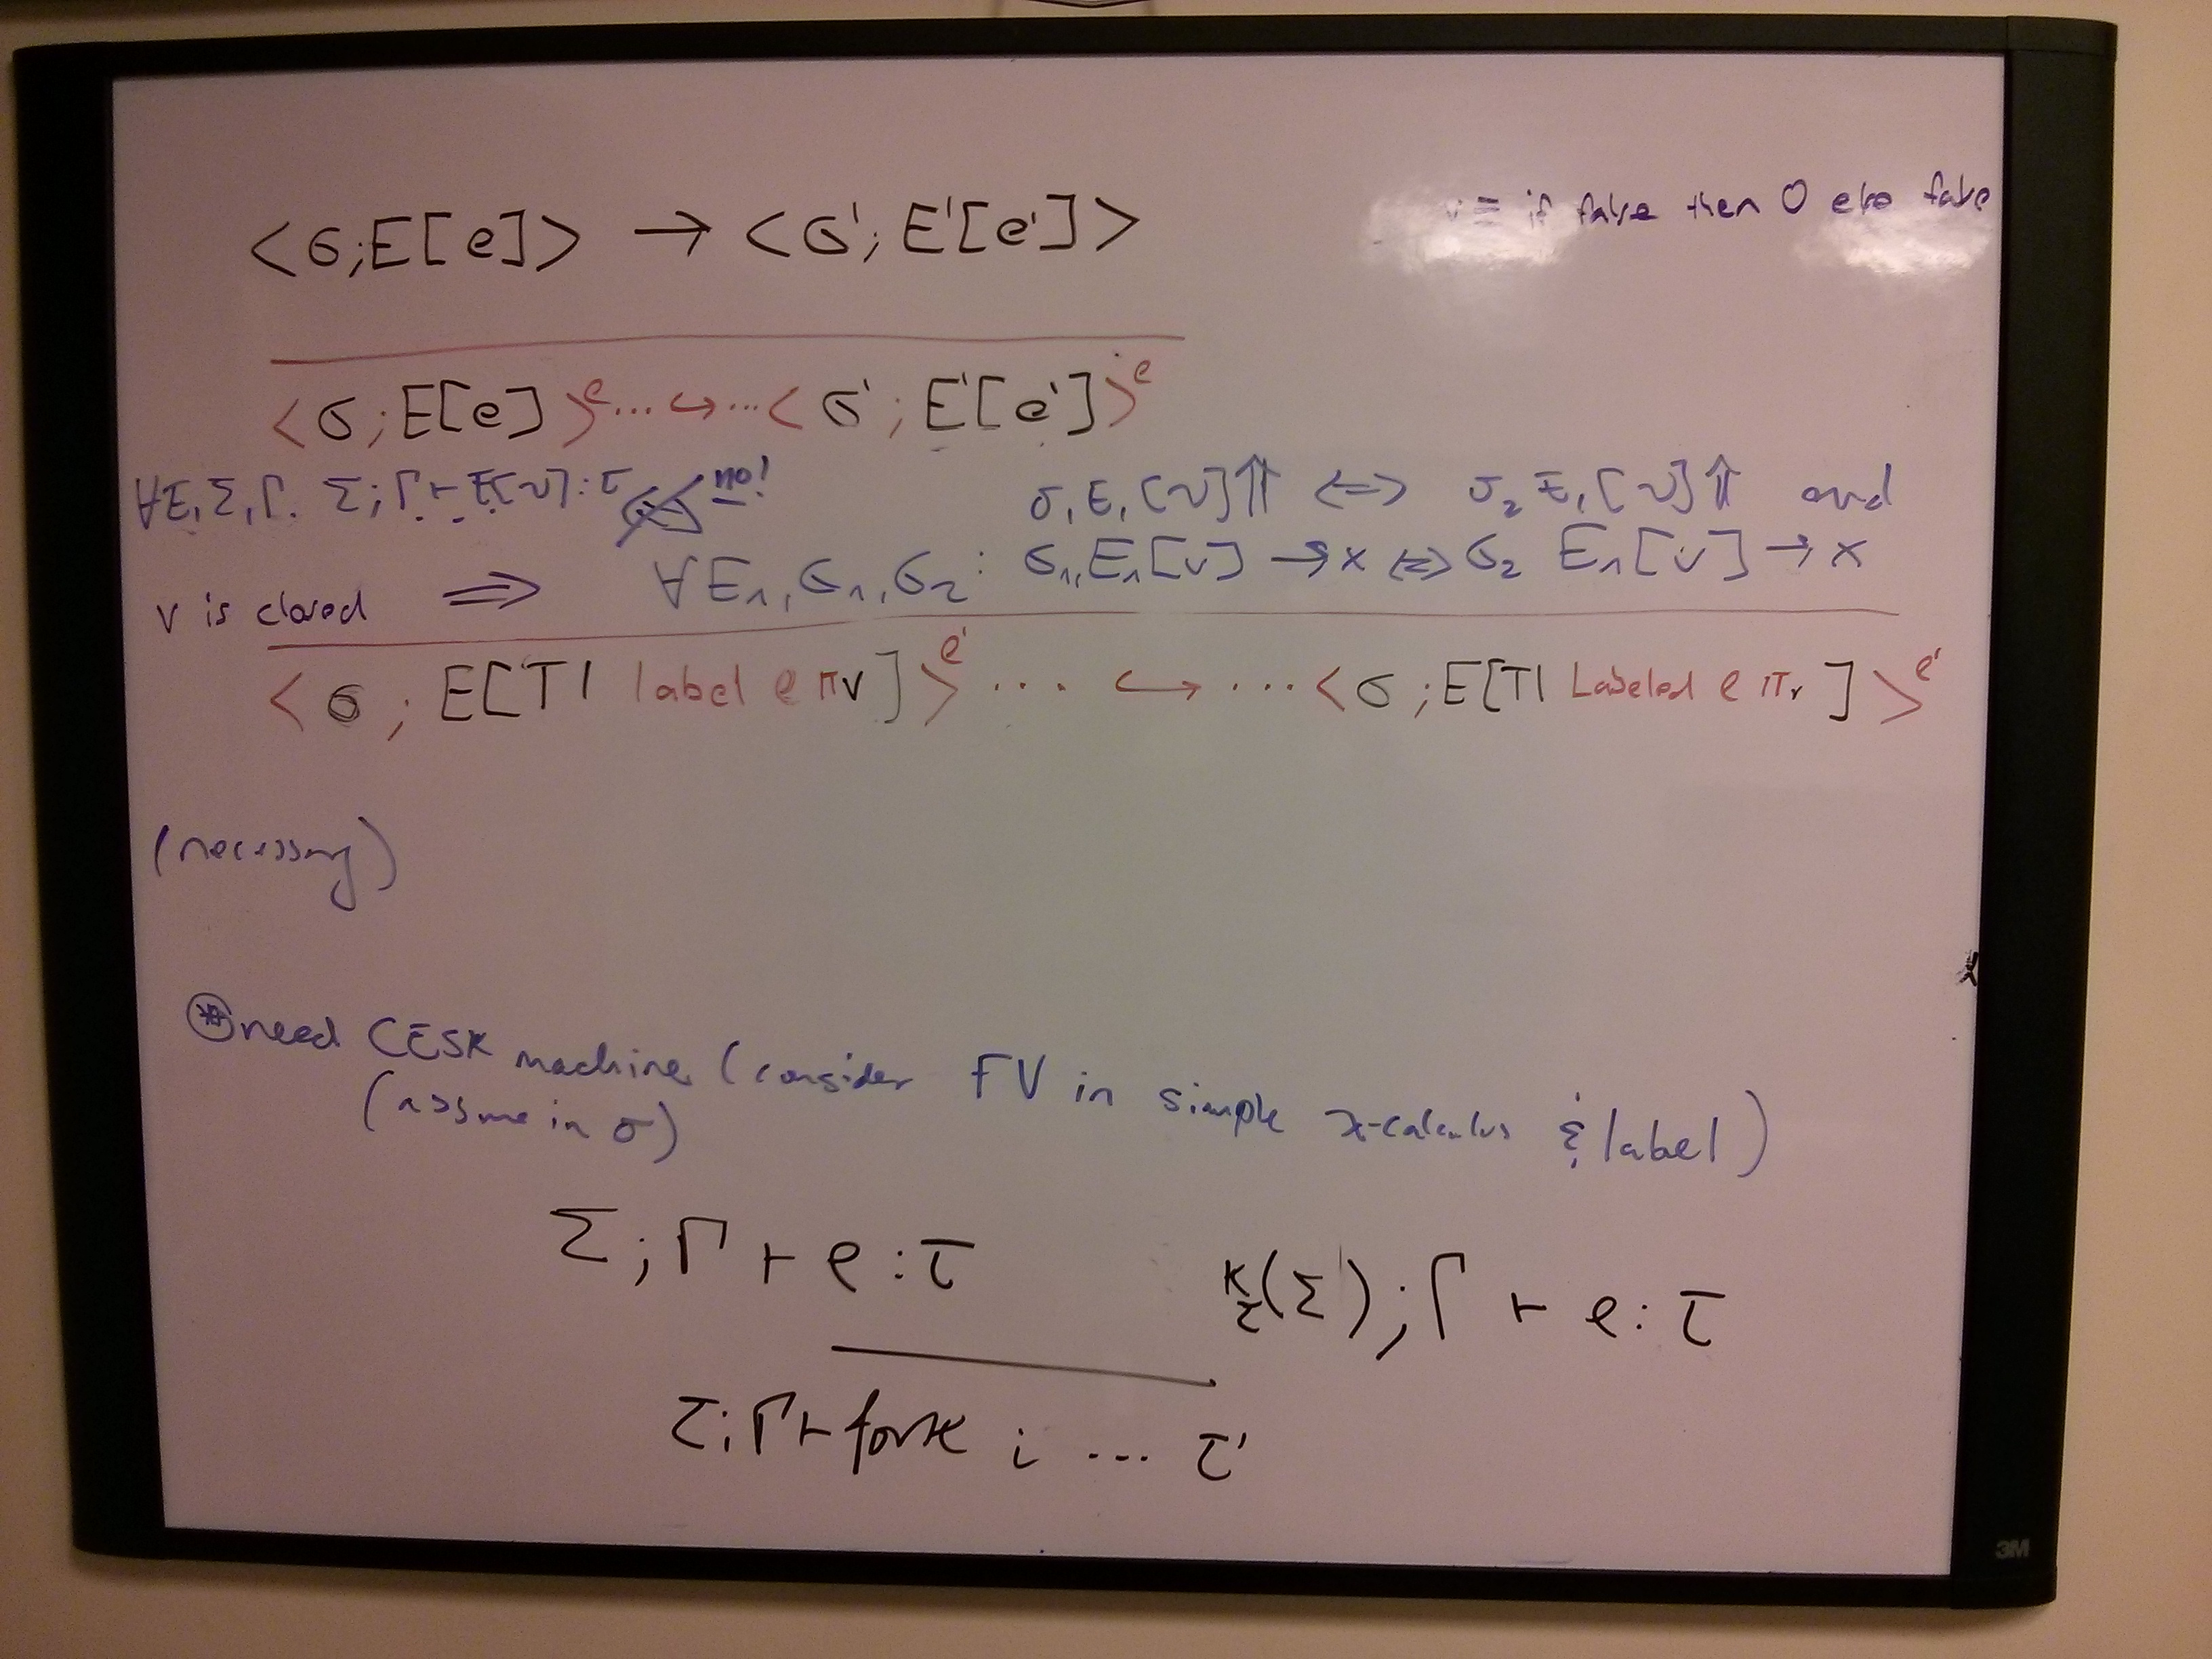 v = if false then 0 else false
<σ;E[e]> → <σ';E'[e']>
<σ;E[e]>^e ... ↪ ... <σ';E'[e']>^e
∀E,Σ,Γ. Σ;Γ ⊢ E[v]:τ no!
σ₁E₁[v]⇑ ⟺ σ₂E₁[v]⇑ and
v is closed ⟹ ∀E₁,σ₁,σ₂: σ₁,E₁[v] → x ⟺ σ₂ E₁[v] → x
<σ;E[TI label e πv]>^e' ... ↪ ... <σ;E[TI Labeled e πv]>^e'
(necessary)
⊛ need CESK machine (consider FV in simple λ-calculus & label)
(assume in σ)
Σ;Γ ⊢ e:τ
(Σ);Γ ⊢ e:τ
Γ ⊢ fork i ... τ'
3M